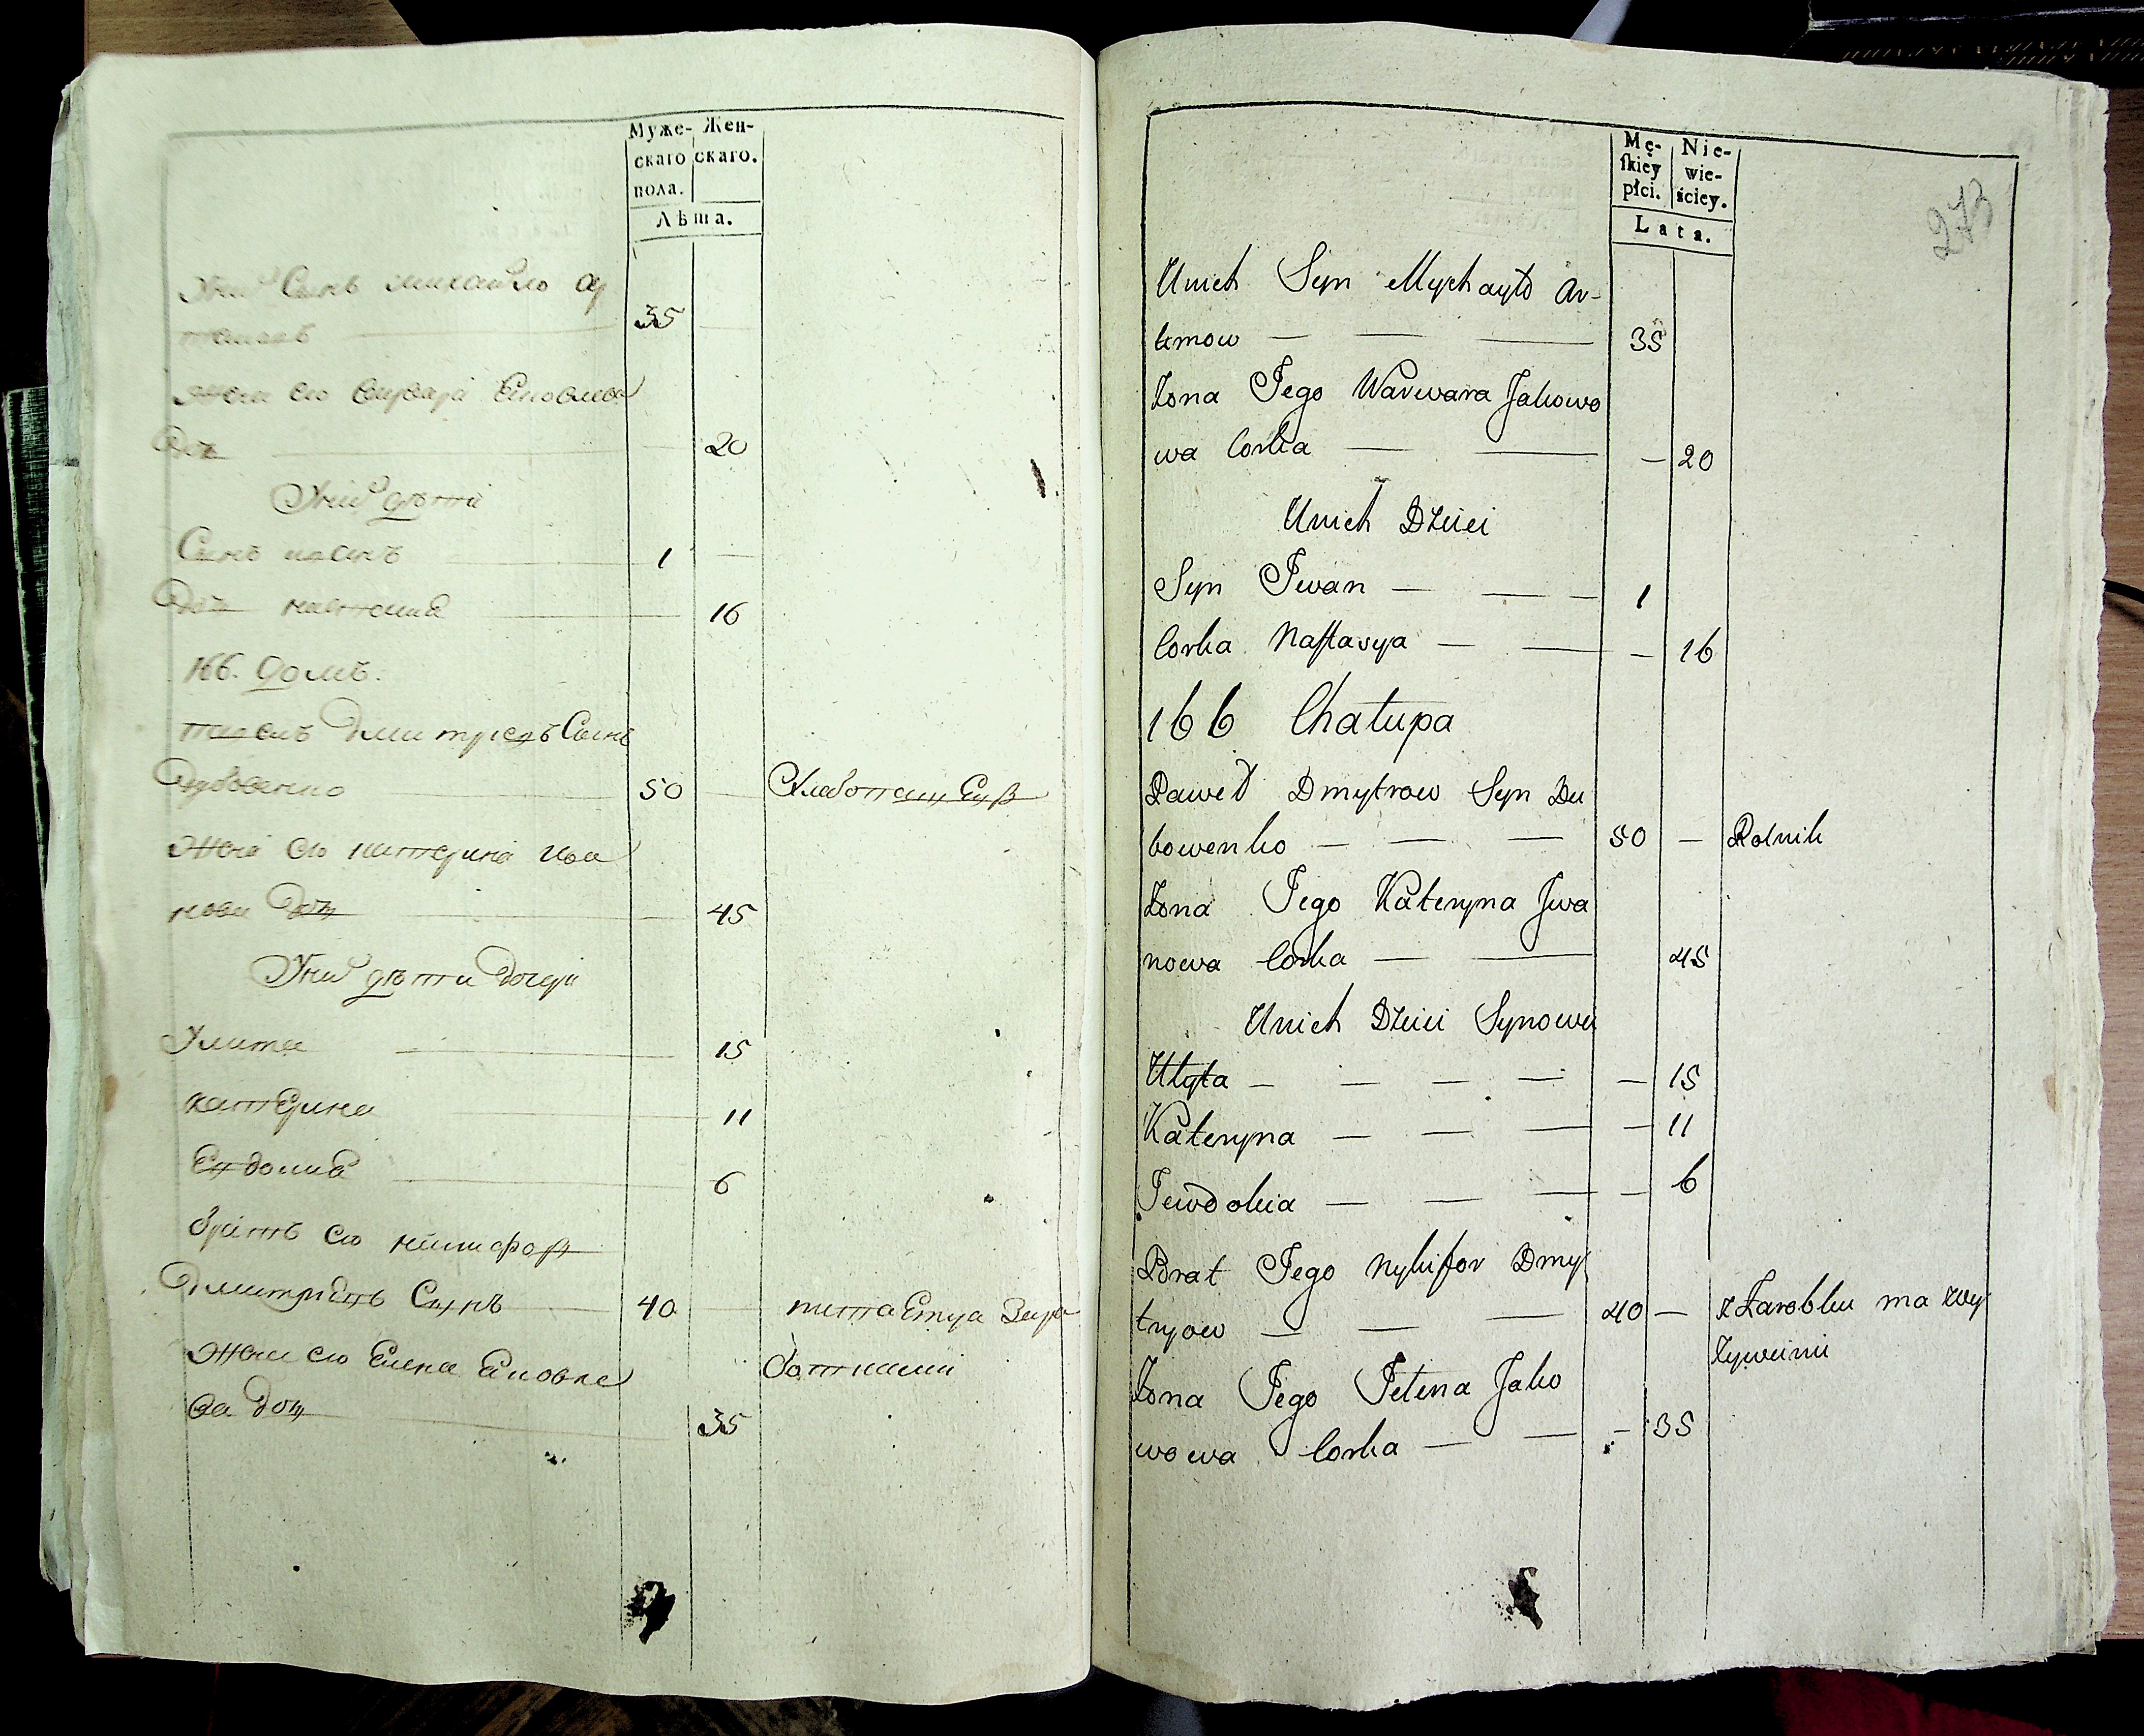 Муже- Жен-
скаго скаго.
пола.
Лѣта.
У них Сынъ михайло ар
темовъ 35
жена ево варвара Яковлева
доч 20
У них дѣти
Сынъ иванъ 1 —
доч настасиа 16
166. домъ.
павелъ дмитревъ Сынъ
дубовенко 50 — Хлебопашец
Жена ево катерина ива
нова доч 45
У них дѣти дочери
Улита 15
катерина 11
Евдокиа 6
братъ ево никифоръ
дмитриевъ Сынъ 40 питается зара
Жена ево Елена Яковле
ва доч 35
ботками
273
Mę- Nie-
skiey wie-
płci. ściey.
Lata.
Unich Syn Mychayło Ar-
temow — — — 35
Żona Jego Warwara Jakowo
wa Corka — — — 20
Unich Dzieci
Syn Jwan — — — 1
Corka Nastasya — — — 16
166 Chałupa
Paweł Dmytrow Syn Du
bowenko — — — 50 — Rolnik
Żona Jego Kateryna Jwa
nowa Corka — — 45
Unich Dzieci Synowei
Ulyta — — — — — 15
Kateryna — — — — 11
Jewdokia — — — — 6
Brat Jego Nykifor Dmy
tryow — — — 40 — z Zarobku ma wy
żywienie
Żona Jego Jelena Jako
wowa Corka — — — 35